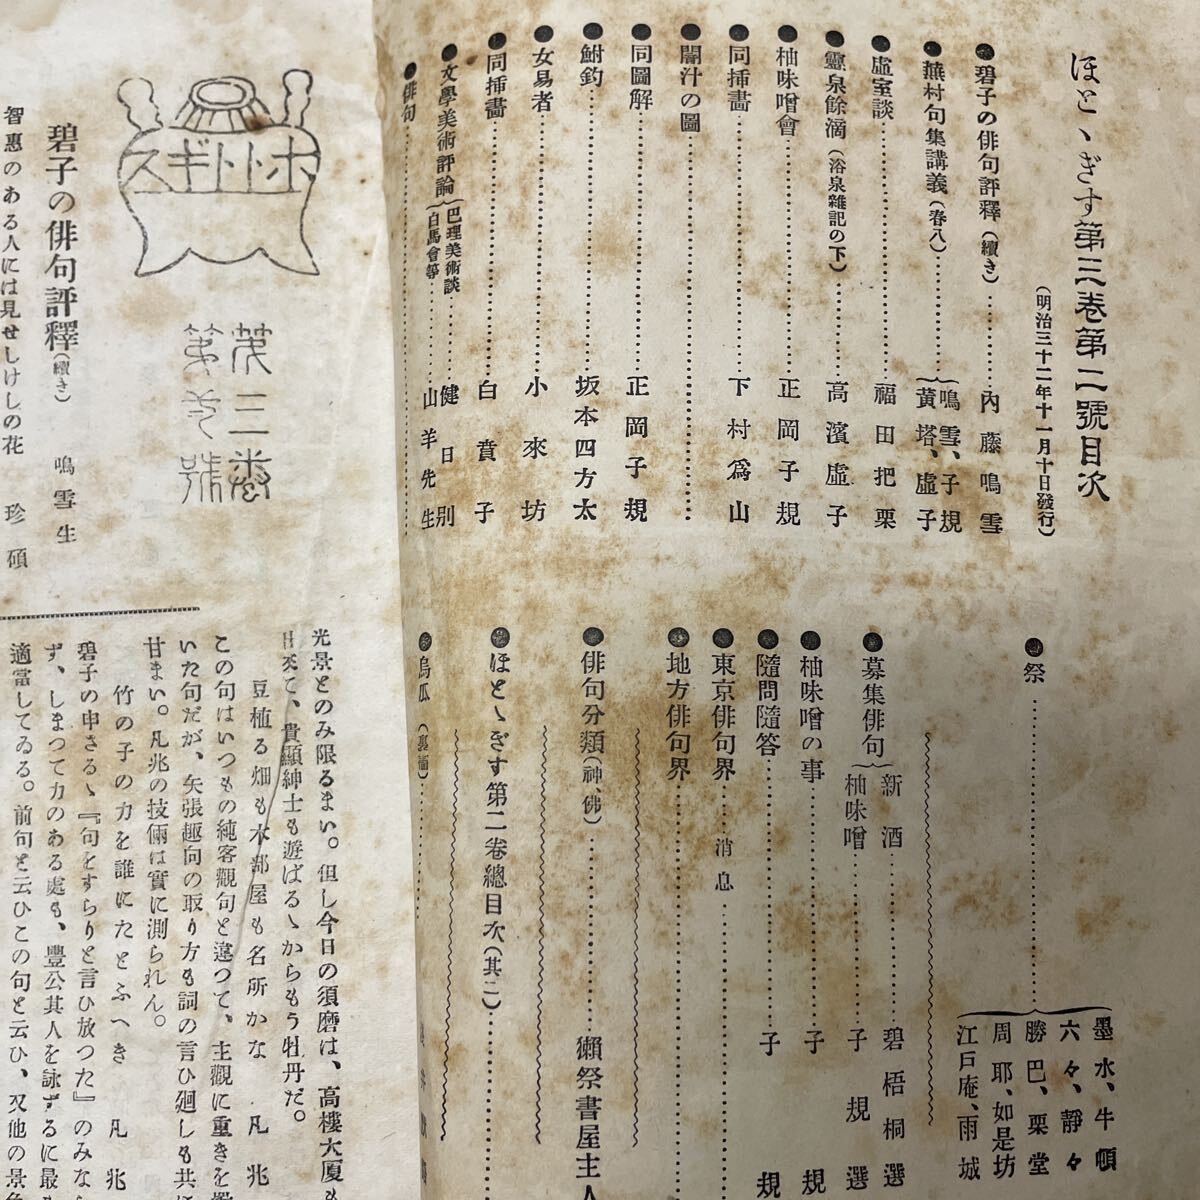 ほとゝぎす第三卷第二號目次
(明治三十二年十一月十日發行)
●碧子の俳句評釋(續き)………內藤鳴雪
●蕪村句集講義(春八)………{鳴雪、子規
黃塔、虛子
●虛室談………福田把栗
●靈泉餘滴(浴泉雜記の下)………高濱虛子
●柚味噌會………正岡子規
●同挿畫………下村爲山
●闇汁の圖………
●同圖解………正岡子規
●鮒釣………坂本四方太
●女易者………小來坊
●同挿畫………白賁子
●文學美術評論{巴理美術談
白馬會等………健日別
山羊先生
●俳句………
●祭………{墨水、牛頓
六々、靜々
勝巴、栗堂
周耶、如是坊
江戶庵、雨城
●募集俳句{新酒………碧梧桐選
柚味噌………子規選
●柚味噌の事………子規
●隨問隨答………子規
●東京俳句界………消息
●地方俳句界
●俳句分類(神、佛)………獺祭書屋主人
●ほとゝぎす第二卷總目次(其二)………
●烏瓜(裏繪)………
ホトトギス
第三卷
第貳號
碧子の俳句評釋(續き) 鳴雪生
智惠のある人には見せしけしの花 珍碩
光景とのみ限るまい。但し今日の須磨は、高樓大厦も
日來て、貴顯紳士も遊ばるゝからもう牡丹だ。
豆植る畑も木部屋も名所かな 凡兆
この句はいつもの純客觀句と違つて、主觀に重きを置
いた句だが、矢張趣向の取り方も詞の言ひ廻しも共に
甘まい。凡兆の技倆は實に測られん。
竹の子の力を誰にたとふへき 凡兆
碧子の申さるゝ『句をすらりと言ひ放つた』のみなら
ず、しまつて力のある處も、豐公其人を詠ずるに最も
適當してゐる。前句と云ひこの句と云ひ、又他の景色